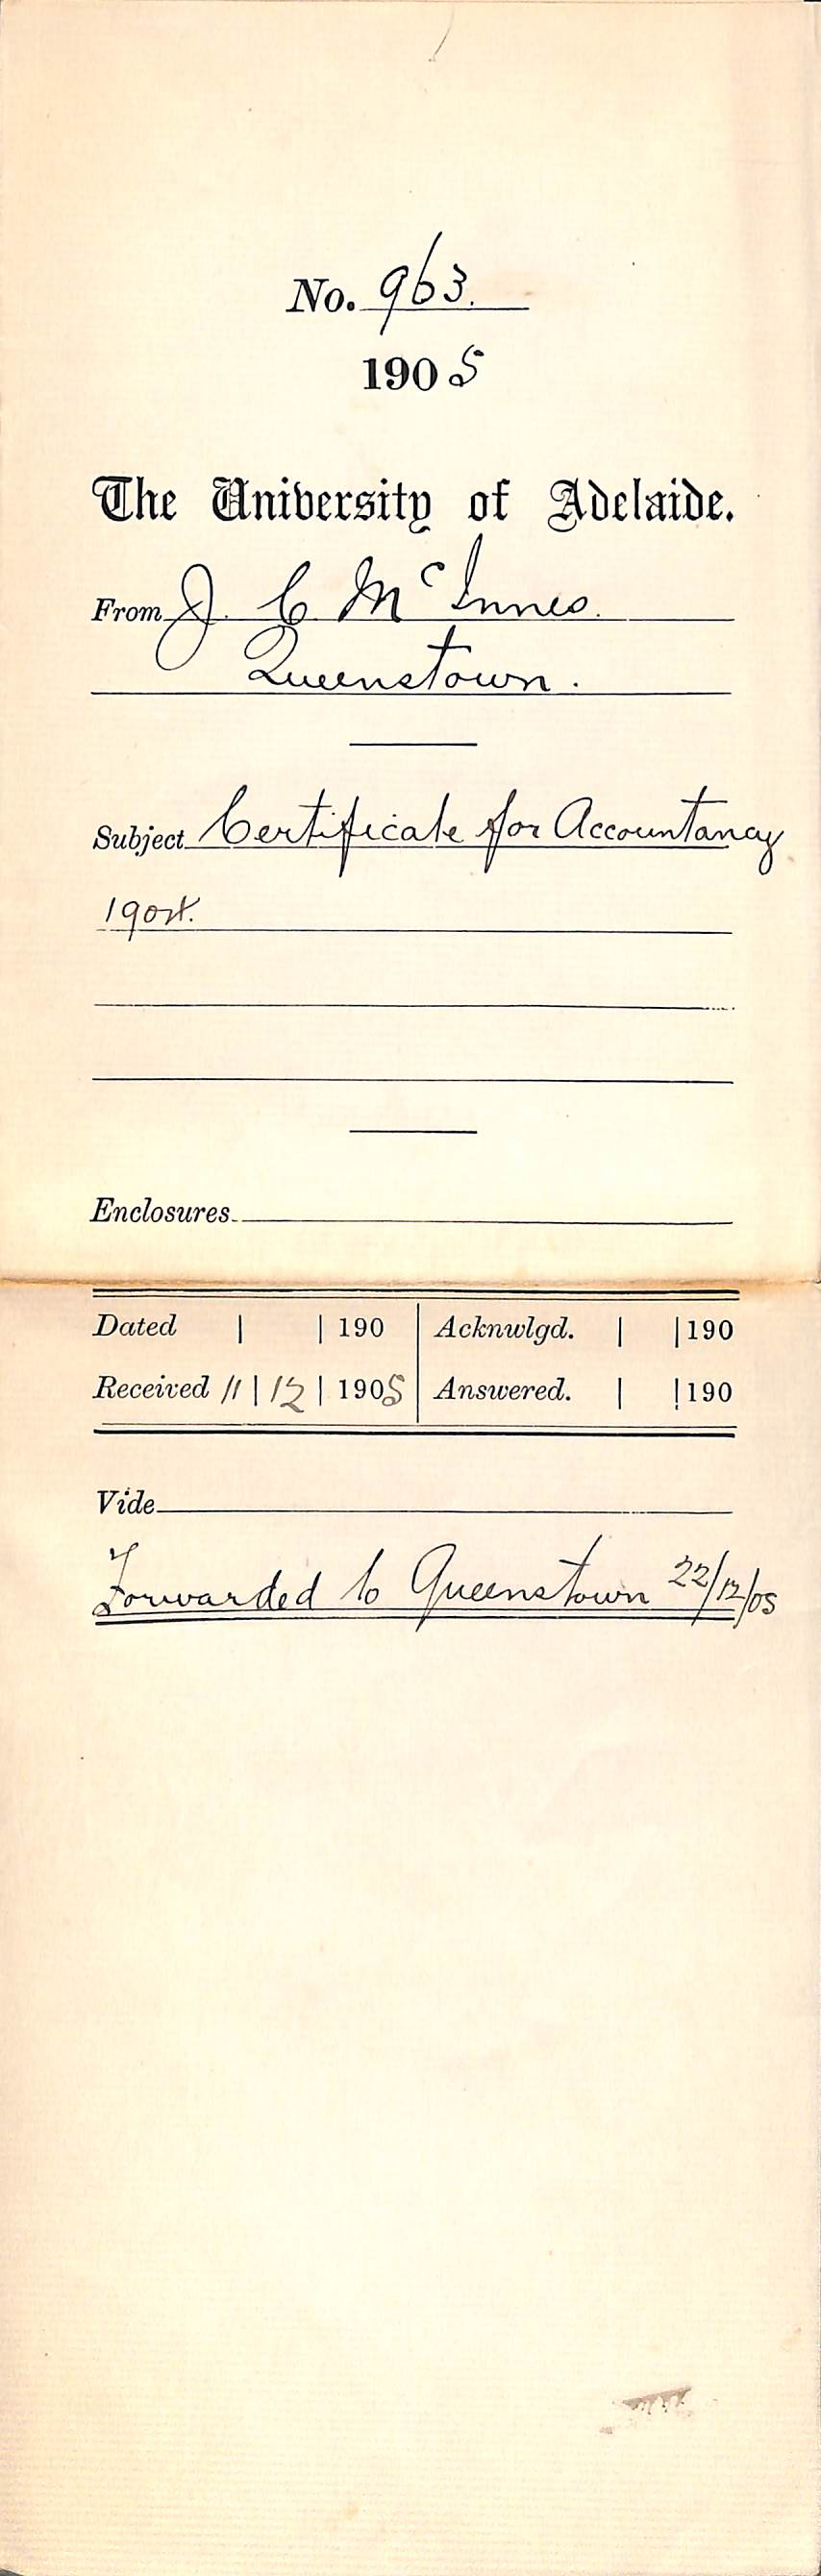 No. 963.
1905
The University of Adelaide.
From J. C. McInnes.
Queenstown.
Subject Certificate for Accountancy
1904.
Enclosures
Dated | | 190 | Acknwlgd. | | 190
Received 11 | 12 | 1905 | Answered. | | 190
Vide
Forwarded to Queenstown 22/12/05